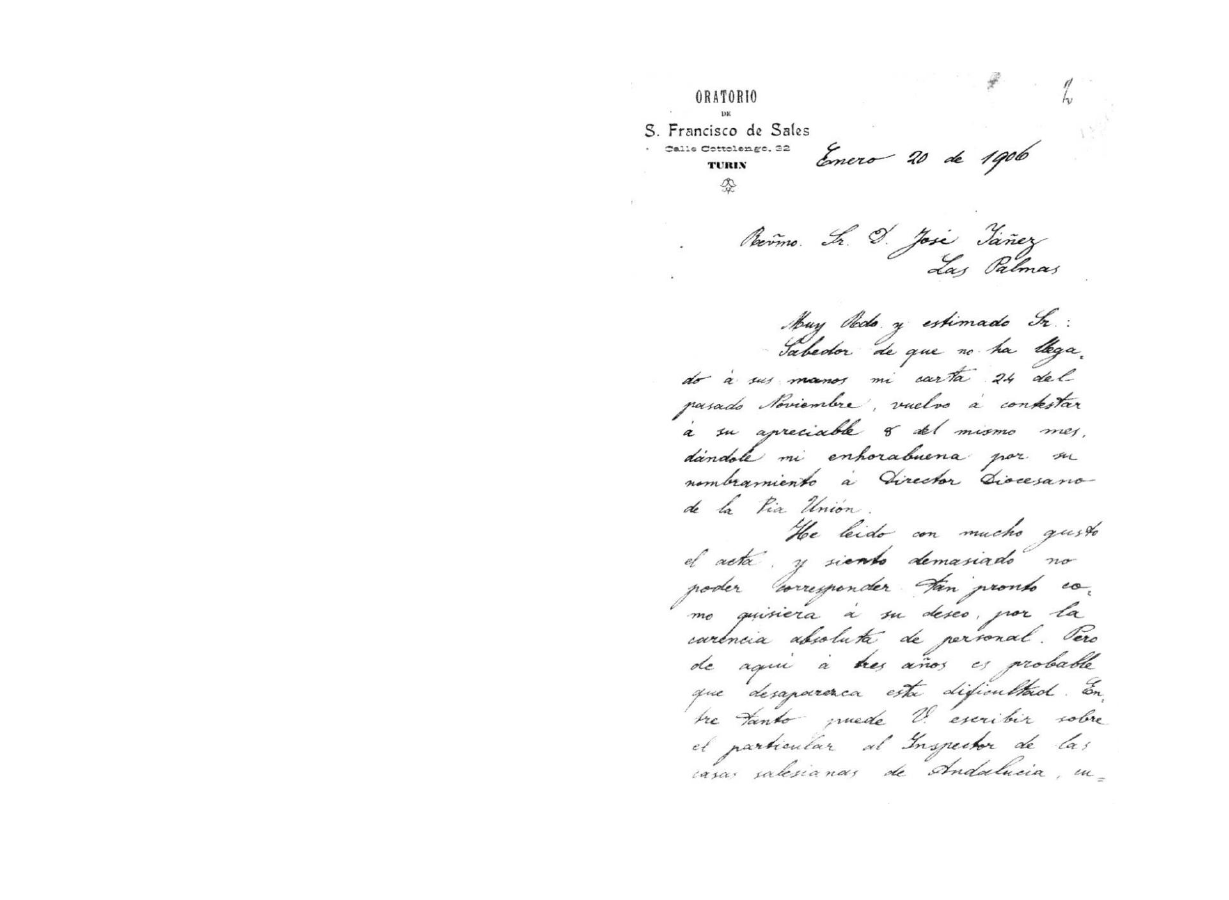 2
ORATORIO
DE
S. Francisco de Sales
Calle Cottolengo, 32
TURIN
Enero 20 de 1906
Revmo. Sr. D. José Yáñez
Las Palmas
Muy Rdo. y estimado Sr.:
Sabedor de que no ha llega-
do á sus manos mi carta 24 del
pasado Noviembre, vuelvo á contestar
á su apreciable 8 del mismo mes,
dándole mi enhorabuena por su
nombramiento á Director Diocesano
de la Pia Unión.
He leido con mucho gusto
el acta, y siento demasiado no
poder corresponder tan pronto co-
mo quisiera á su deseo, por la
carencia absoluta de personal. Pero
de aquí á tres años es probable
que desaparezca esta dificultad. En-
tre tanto puede V. escribir sobre
el particular al Inspector de las
casas salesianas de Andalucia, cu=